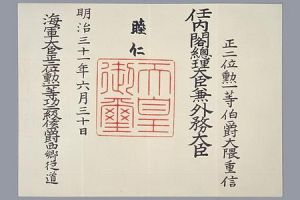 正二位勲一等伯爵大隈重信
任内閣總理大臣兼外務大臣
睦仁
天皇
御璽
明治三十一年六月三十日
海軍大臣正二位勲一等功二級侯爵西郷従道